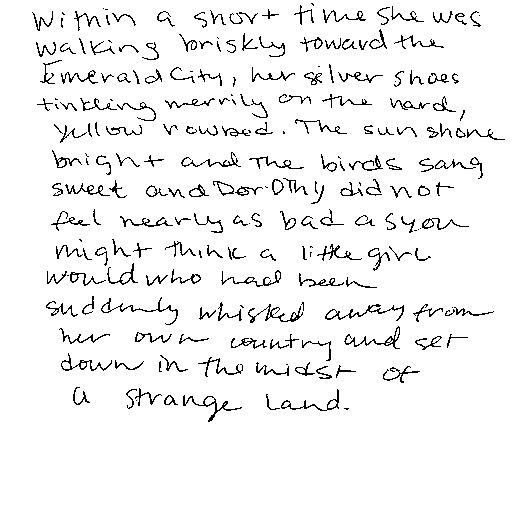 Within a short time she was
walking briskly toward the
Emerald City, her silver shoes
tinkling merrily on the hard,
yellow rowbed. The sun shone
bright and the birds sang
sweet and Dorothy did not
feel nearly as bad as you
might think a little girl
would who had been
suddenly whisked away from
her own country and set
down in the midst of
a strange land.